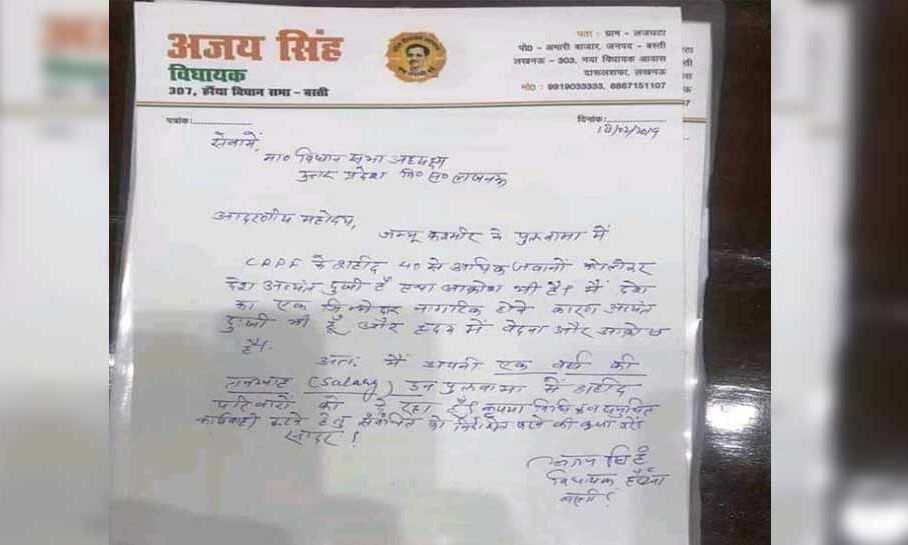 अजय सिंह
विधायक
307, हर्रैया विधान सभा - बस्ती
पता : ग्राम - लजघटा
पो0 - अमारी बाजार, जनपद - बस्ती
लखनऊ - 303, नया विधायक आवास
दारूलशफा, लखनऊ
मो0 : 9919033333, 8887151107
पत्रांक:
दिनांक:
18/02/2019
सेवामें,
मा० विधान सभा अध्यक्ष
उत्तर प्रदेश वि० स० लखनऊ
आदरणीय महोदय,
जम्मू कश्मीर के पुलवामा में
CRPF के शहीद 40 से अधिक जवानों को लेकर
देश अत्यंत दुखी है तथा आक्रोश भी है। मैं देश
का एक जिम्मेदार नागरिक होने के कारण अत्यंत
दुखी भी हूँ और हृदय में वेदना और आक्रोश
है।
अतः मैं अपनी एक वर्ष की
तनख्वाह (Salary) उन पुलवामा में शहीद
परिवारों को दे रहा हूँ। कृपया समुचित
कार्यवाही करने हेतु संबंधित को निर्देशित करने की कृपा करें
सादर!
अजय सिंह
विधायक हर्रैया
बस्ती।